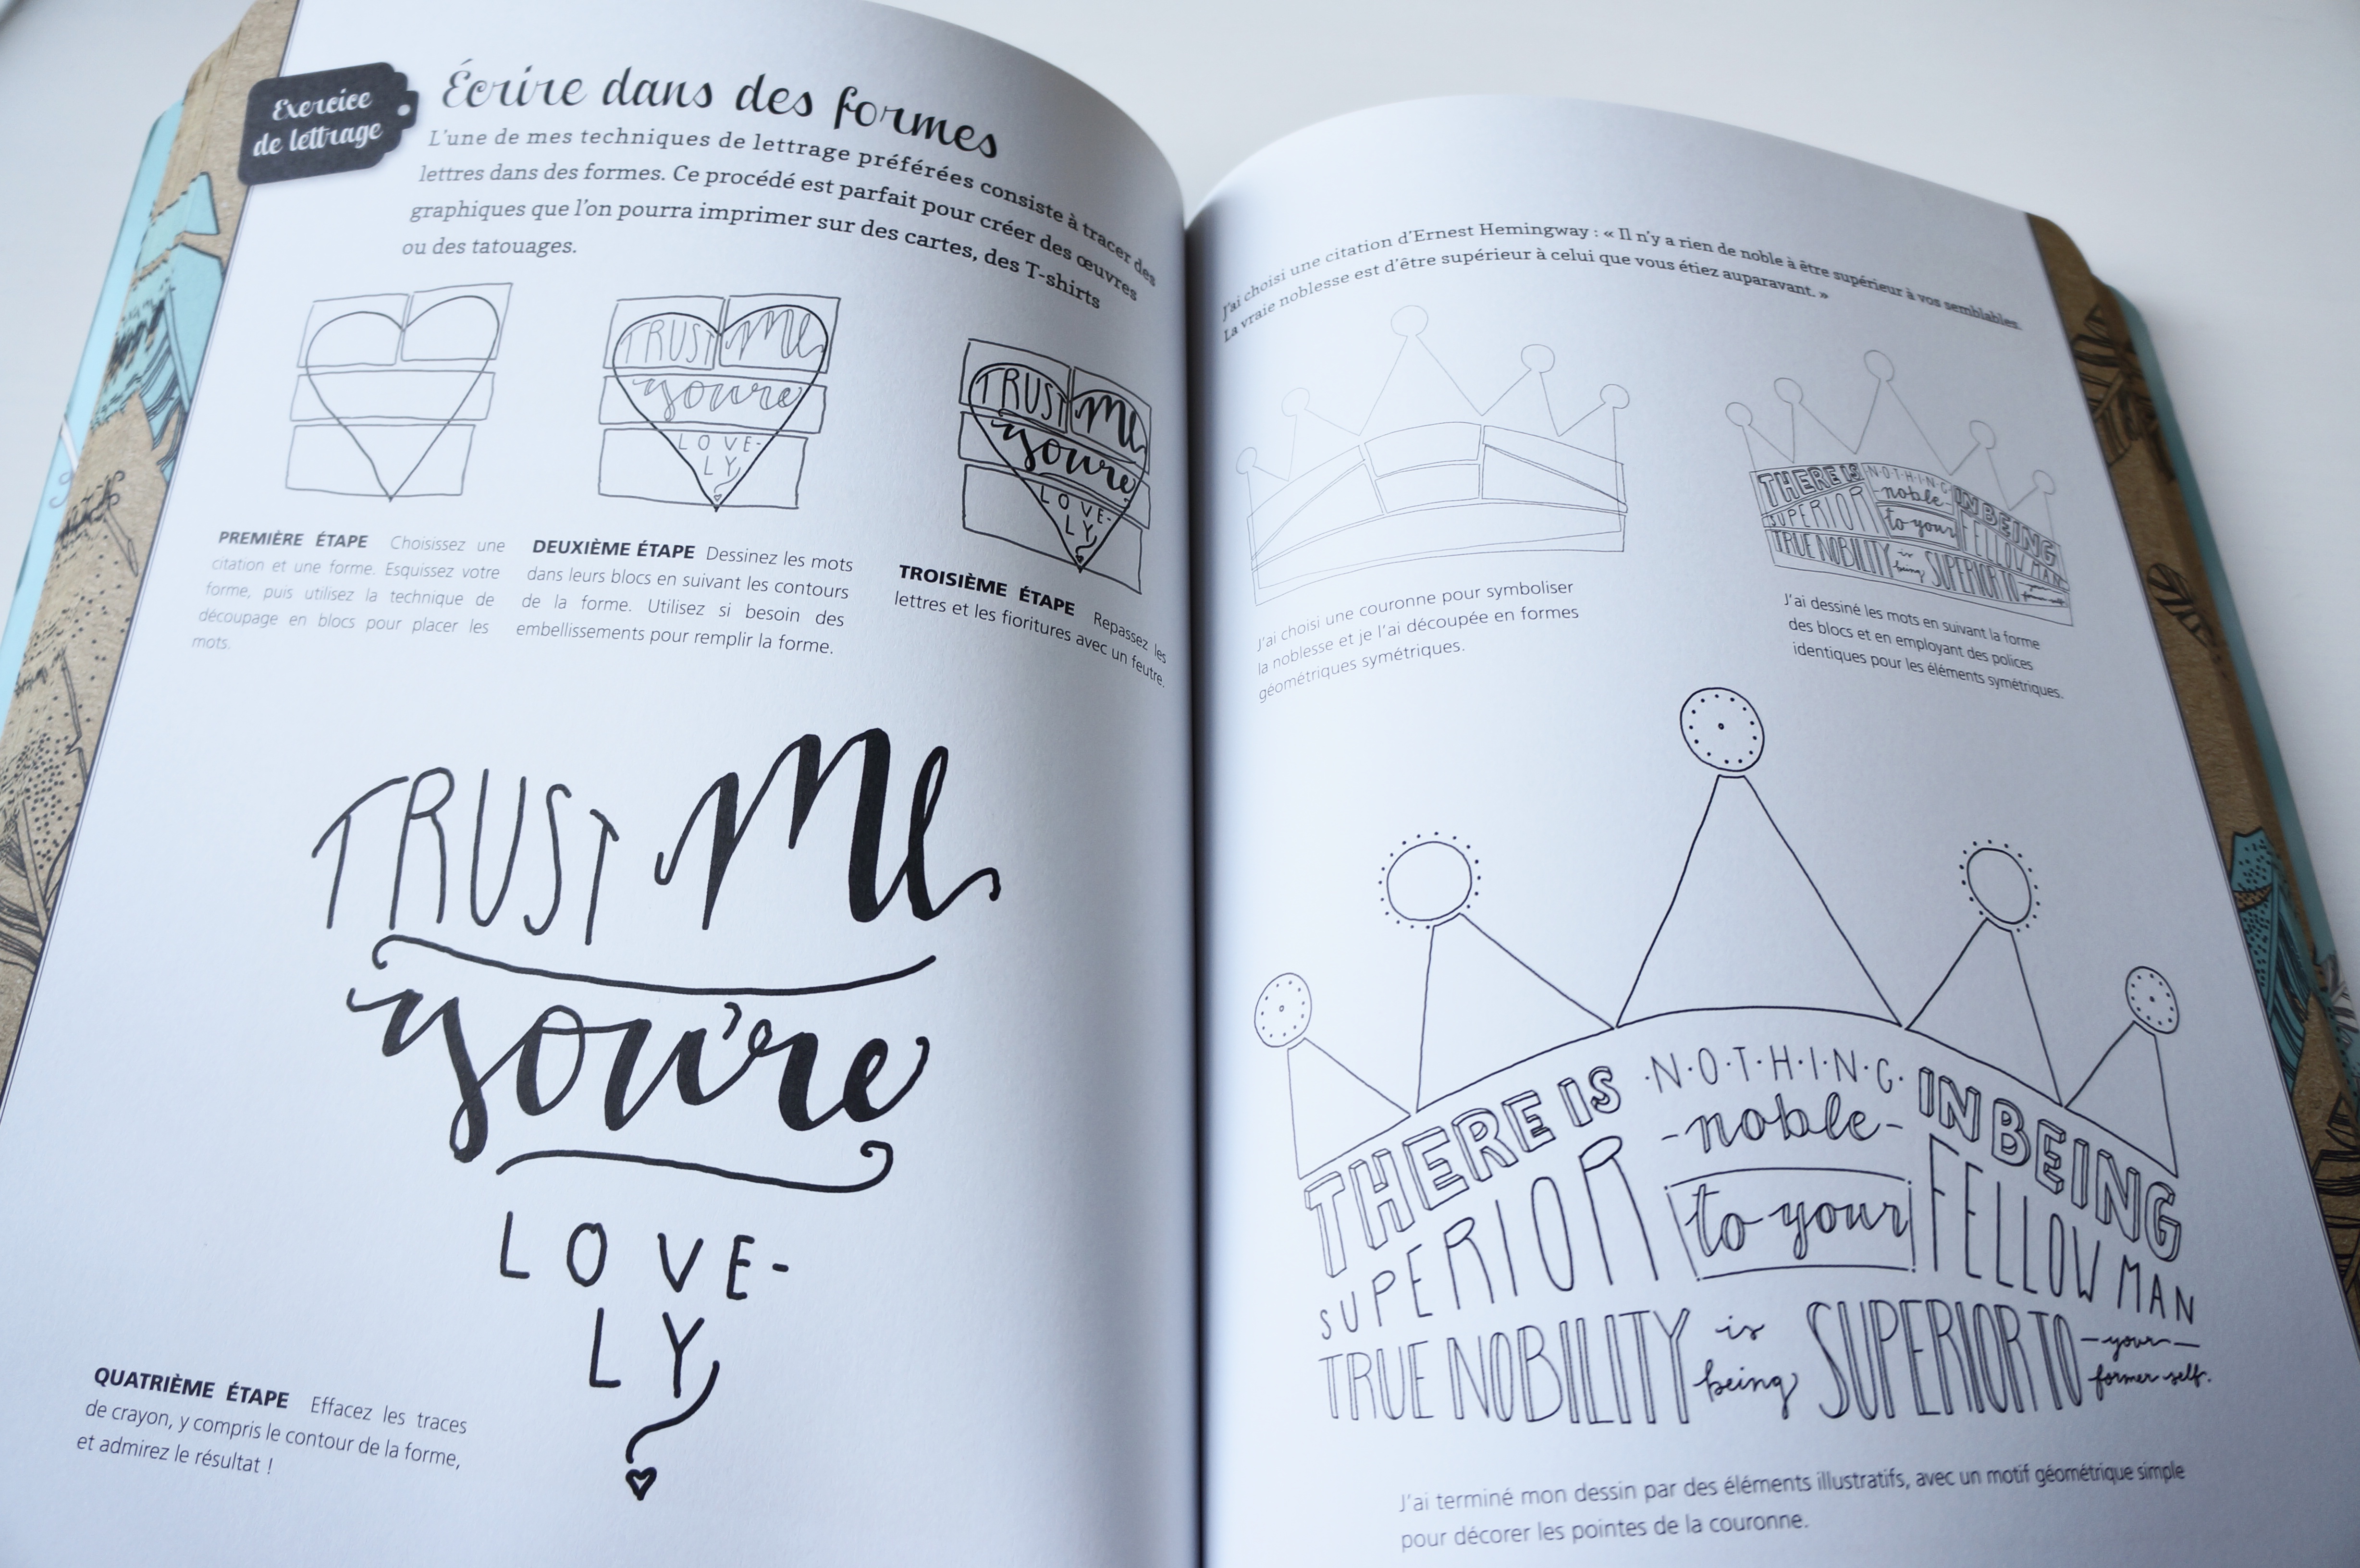 Exercice
de lettrage
Écrire dans des formes
L'une de mes techniques de lettrage préférées consiste à tracer des
lettres dans des formes. Ce procédé est parfait pour créer des œuvres
graphiques que l'on pourra imprimer sur des cartes, des T-shirts
ou des tatouages.
TRUST Me
you're
LOVE-
LY
TRUST Me
you're
LOVE-
LY
PREMIÈRE ÉTAPE Choisissez une
citation et une forme. Esquissez votre
forme, puis utilisez la technique de
découpage en blocs pour placer les
mots.
DEUXIÈME ÉTAPE Dessinez les mots
dans leurs blocs en suivant les contours
de la forme. Utilisez si besoin des
embellissements pour remplir la forme.
TROISIÈME ÉTAPE Repassez les
lettres et les fioritures avec un feutre.
TRUST Me
you're
LOVE-
LY
QUATRIÈME ÉTAPE Effacez les traces
de crayon, y compris le contour de la forme,
et admirez le résultat !
J'ai choisi une citation d'Ernest Hemingway : « Il n'y a rien de noble à être supérieur à vos semblables.
La vraie noblesse est d'être supérieur à celui que vous étiez auparavant. »
THERE IS N·O·T·H·I·N·G IN BEING
-noble-
SUPERIOR to your FELLOW MAN
TRUE NOBILITY is being SUPERIOR TO your former self.
J'ai choisi une couronne pour symboliser
la noblesse et je l'ai découpée en formes
géométriques symétriques.
J'ai dessiné les mots en suivant la forme
des blocs et en employant des polices
identiques pour les éléments symétriques.
THERE IS ·N·O·T·H·I·N·G· IN BEING
-noble-
SUPERIOR to your FELLOW MAN
TRUE NOBILITY is being SUPERIOR TO -your- former self.
J'ai terminé mon dessin par des éléments illustratifs, avec un motif géométrique simple
pour décorer les pointes de la couronne.